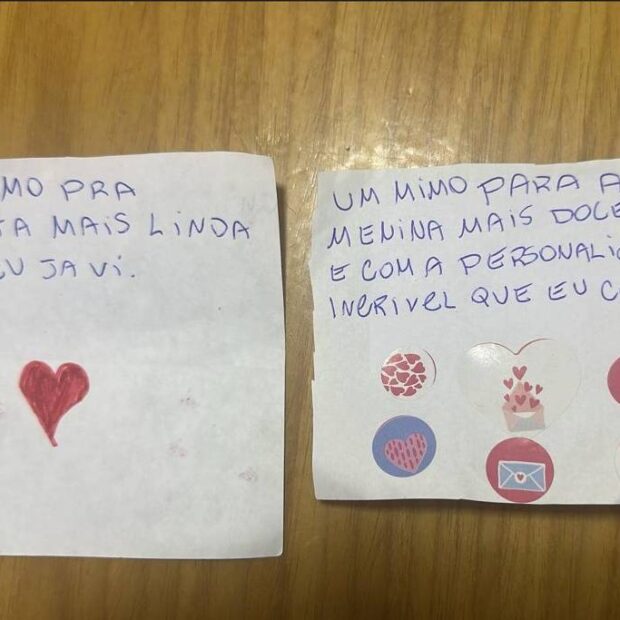 MO PRA
TA MAIS LINDA
EU JA VÍ.
UM MIMO PARA A
MENINA MAIS DOCE
E COM A PERSONALI
INCRIVEL QUE EU C